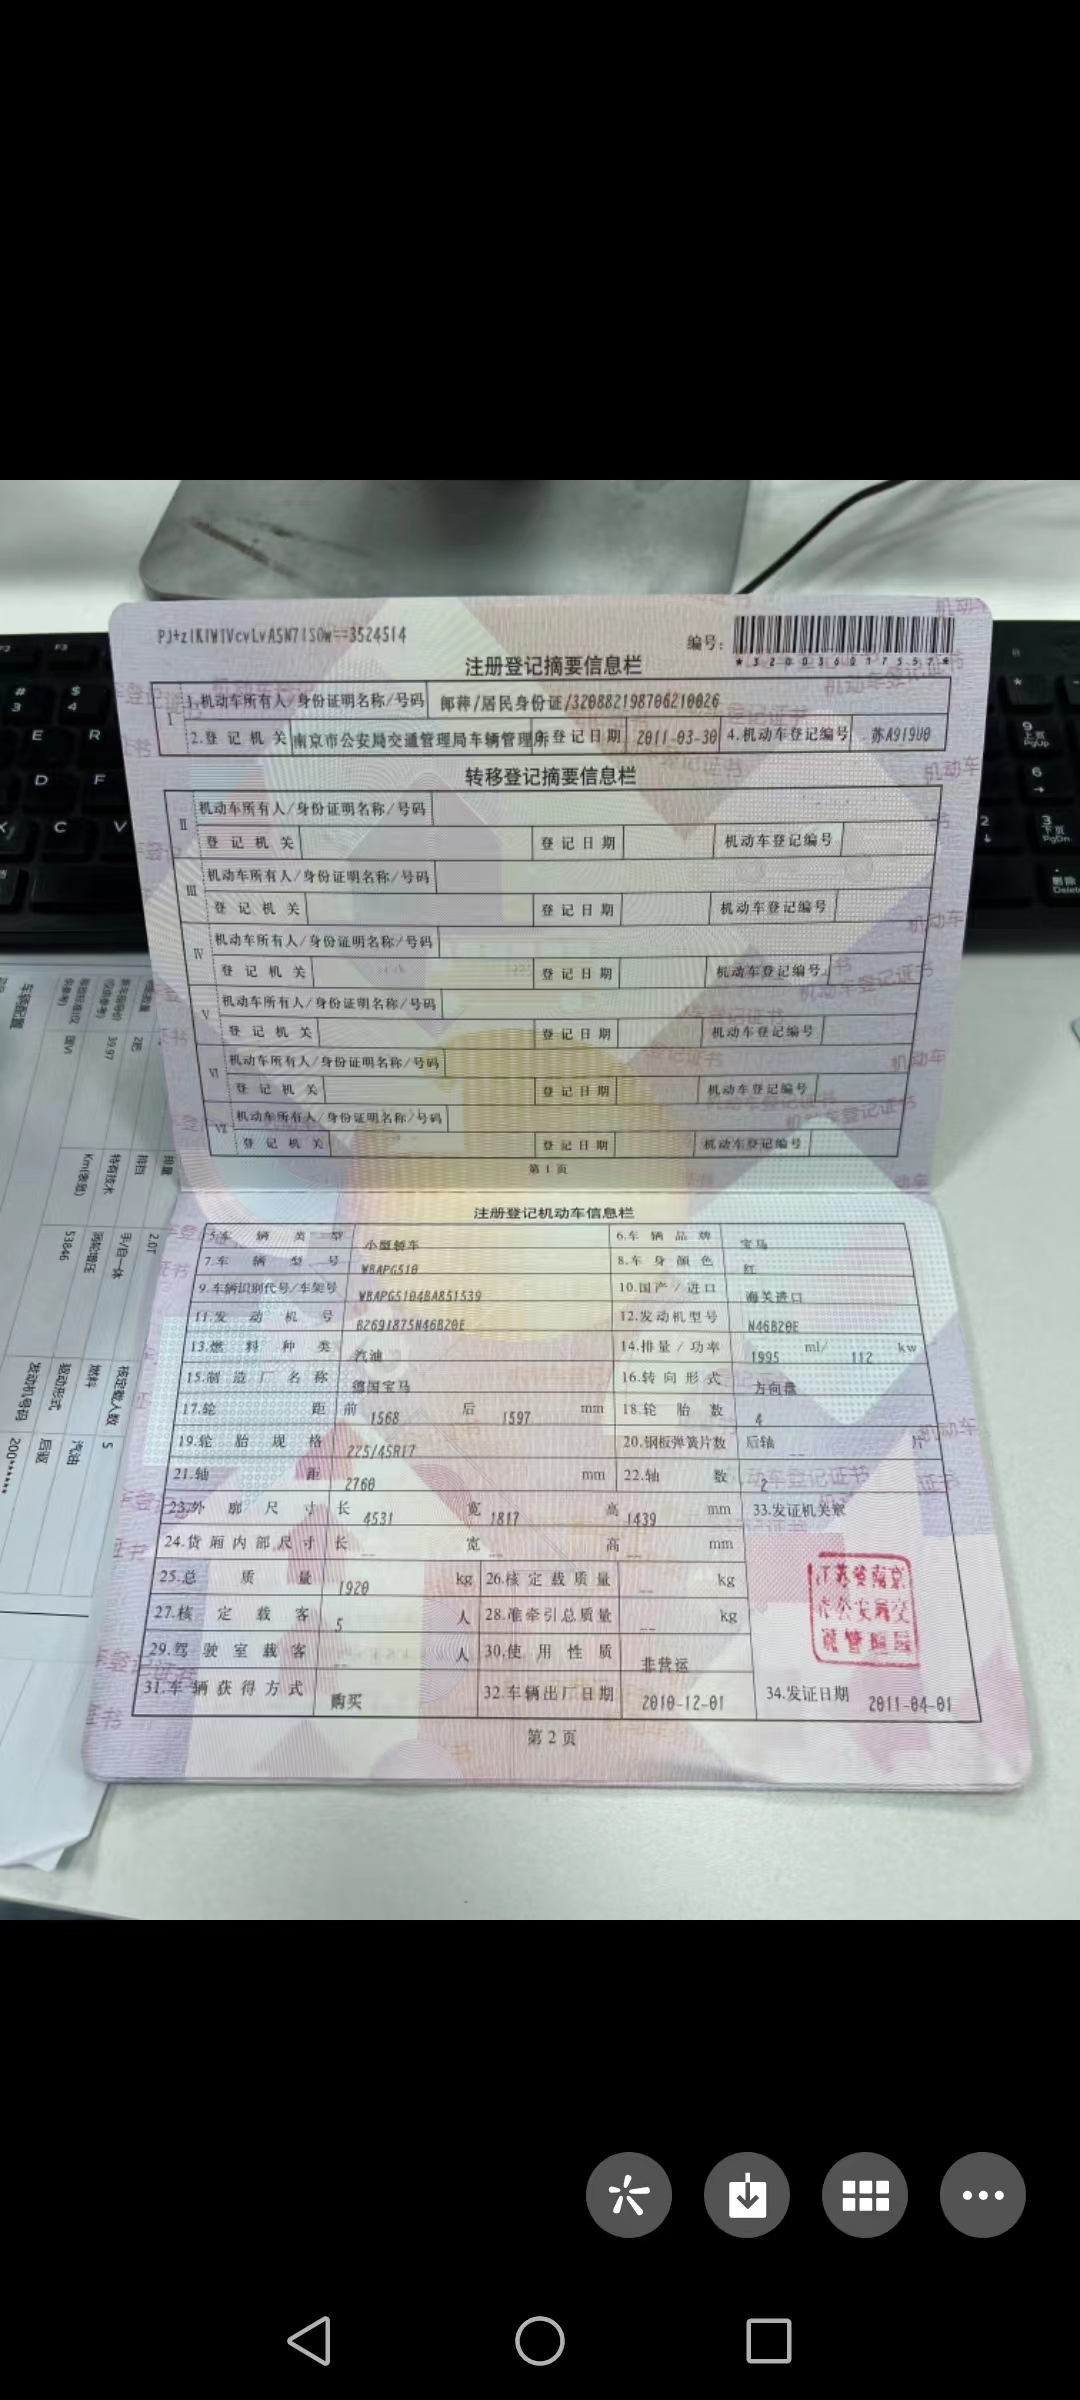 PJ+z1KIW1VcvLvA5N71S0w==3524514
编号:
*320036017557*
注册登记摘要信息栏
I 1.机动车所有人/身份证明名称/号码 郎萍/居民身份证/320882198706210026
2.登记机关 南京市公安局交通管理局车辆管理所 登记日期 2011-03-30 4.机动车登记编号 苏A919U0
转移登记摘要信息栏
II 机动车所有人/身份证明名称/号码
登记机关 登记日期 机动车登记编号
III 机动车所有人/身份证明名称/号码
登记机关 登记日期 机动车登记编号
IV 机动车所有人/身份证明名称/号码
登记机关 登记日期 机动车登记编号
V 机动车所有人/身份证明名称/号码
登记机关 登记日期 机动车登记编号
VI 机动车所有人/身份证明名称/号码
登记机关 登记日期 机动车登记编号
VII 机动车所有人/身份证明名称/号码
登记机关 登记日期 机动车登记编号
第1页
注册登记机动车信息栏
5.车辆类型 小型轿车 6.车辆品牌 宝马
7.车辆型号 WBAPG510 8.车身颜色 红
9.车辆识别代号/车架号 WBAPG5104BA851539 10.国产/进口 海关进口
11.发动机号 B2691875N46B20E 12.发动机型号 N46B20E
13.燃料种类 汽油 14.排量/功率 1995 ml/ 112 kw
15.制造厂名称 德国宝马 16.转向形式 方向盘
17.轮距 前 1568 后 1597 mm 18.轮胎数 4
19.轮胎规格 225/45R17 20.钢板弹簧片数 后轴 -- 片
21.轴距 2760 mm 22.轴数 2
23.外廓尺寸 长 4531 宽 1817 高 1439 mm 33.发证机关章
24.货厢内部尺寸 长 -- 宽 -- 高 -- mm
25.总质量 1920 kg 26.核定载质量 -- kg
27.核定载客 5 人 28.准牵引总质量 -- kg
29.驾驶室载客 -- 人 30.使用性质 非营运
31.车辆获得方式 购买 32.车辆出厂日期 2010-12-01 34.发证日期 2011-04-01
第2页
车辆配置
国VI
39.97
2把
Km(表显)
53846
特有技术
涡轮增压
排挡
手/自一体
排量
2.0T
发动机号码
200******
驱动形式
后驱
燃料
汽油
核定载人数
5